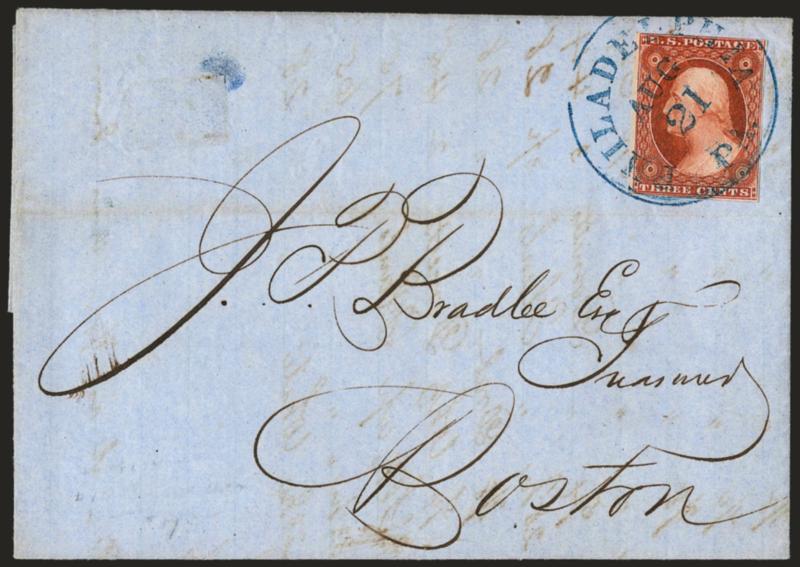 PHILADELPHIA Pa.
AUG
21
U.S. POSTAGE
THREE CENTS
J. P. Bradlee Esq
Treasurer
Boston